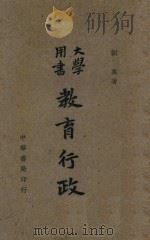 大學
用書
教育行政
中華書局印行